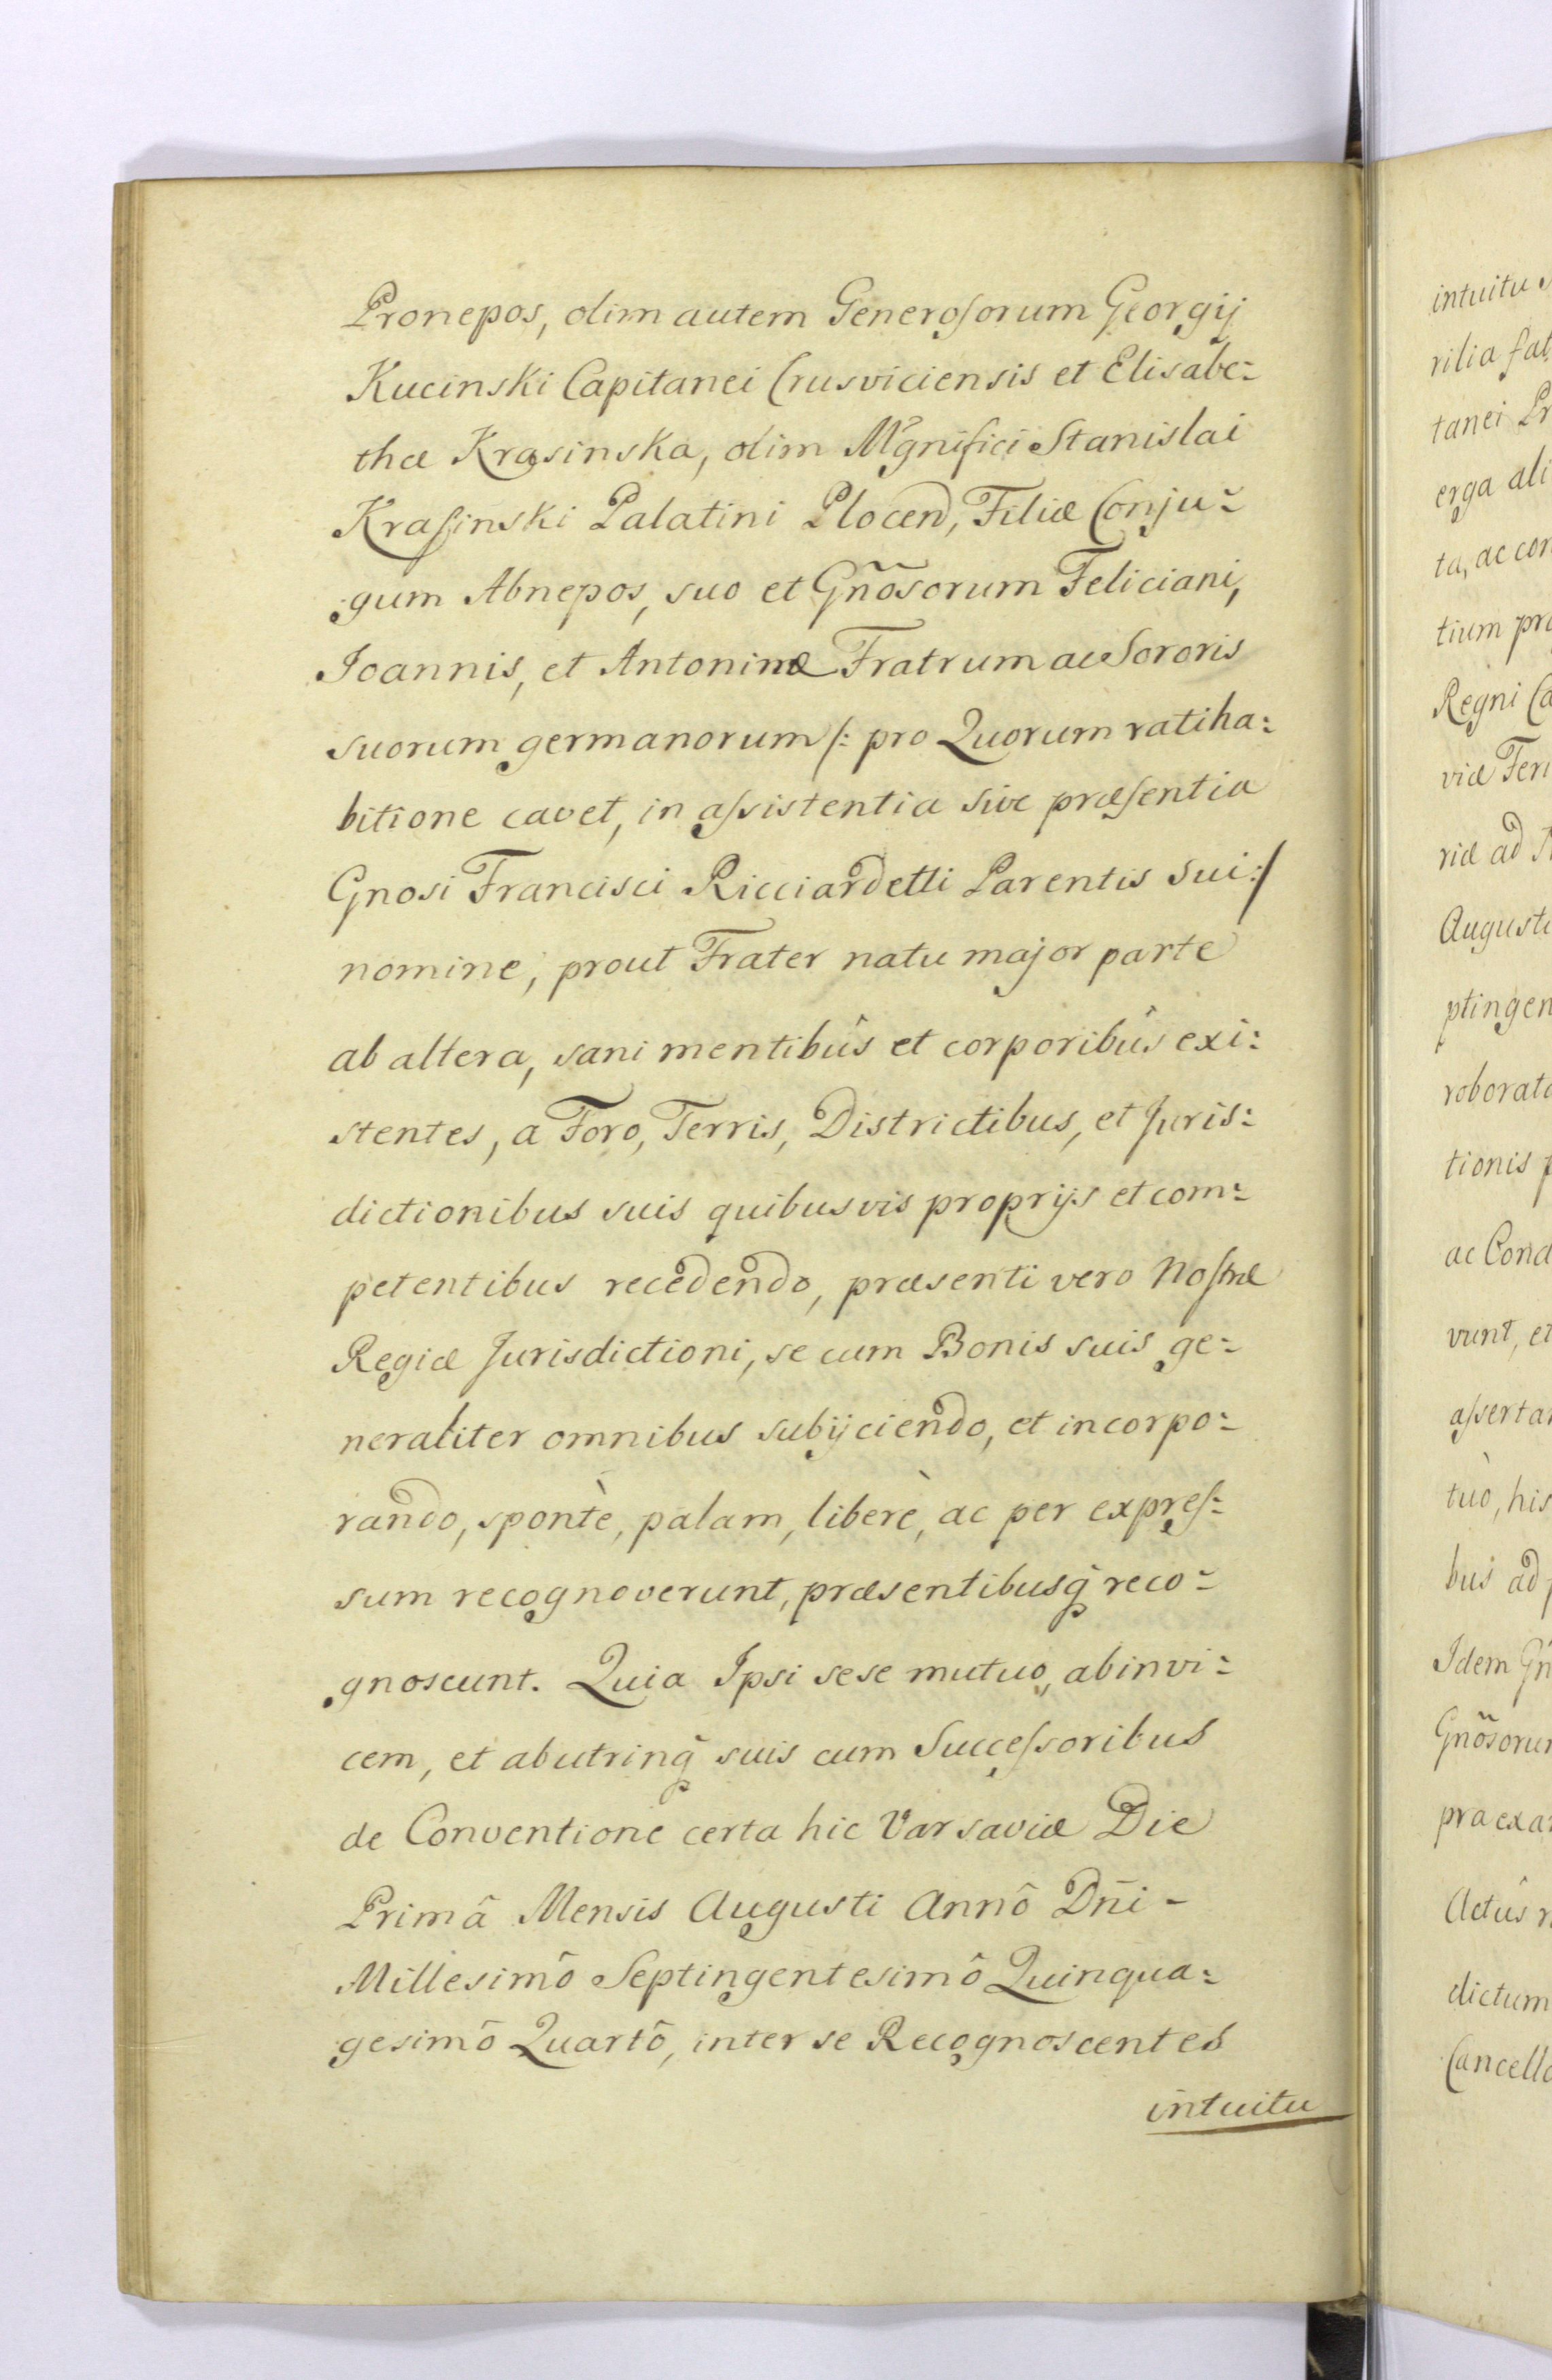 Pronepos, olim autem Generoſorum Georgij
Kucinski Capitanei Crusviciensis et Elisabe=
thæ Krasinska, olim Mgnifici Stanislai
Kraſinski Palatini Plocen, Filiæ Conju=
gum Abnepos, suo et Gñõsorum Feliciani,
Joannis, et Antoninæ Fratrum ac Sororis
suorum germanorum /: pro Quorum ratiha=
bitione cavet, in aſsistentia sive præſentia
Gnosi Francisci Ricciardetti Parentis sui :/
nomine, prout Frater natu major parte
ab altera, sani mentibûs et corporibûs exi=
stentes, a Foro, Terris, Districtibus, et Juris=
dictionibus suis quibusvis proprijs et com=
petentibus recedendo, præsenti vero Noſtræ
Regiæ Jurisdictioni, se cum Bonis suis ge=
neraliter omnibus subijciendo, et incorpo=
rando, spontè, palam, liberè, ac per expreſ=
sum recognoverunt, præsentibusq̃ reco=
gnoscunt. Quia Ipsi sese mutuo, abinvi=
cem, et abutrinq̃ suis cum Succeſsoribus
de Conventione certa hic Varsaviæ Die
Primâ Mensis Augusti Annô Dñi -
Millesimô Septingentesimô Quinqua=
gesimô Quartô, inter se Recognoscentes
intuitu
intuitu
rilia
tanei
erga
ta, ac
tium
Regni
viæ
riæ ad
Augusti
ptingen
roborat
tionis
ac Cond
vunt, et
aſserta
tuò, his
bus ad
Idem
Gñõsoru
praexa
Actûs
dictum
Cancell